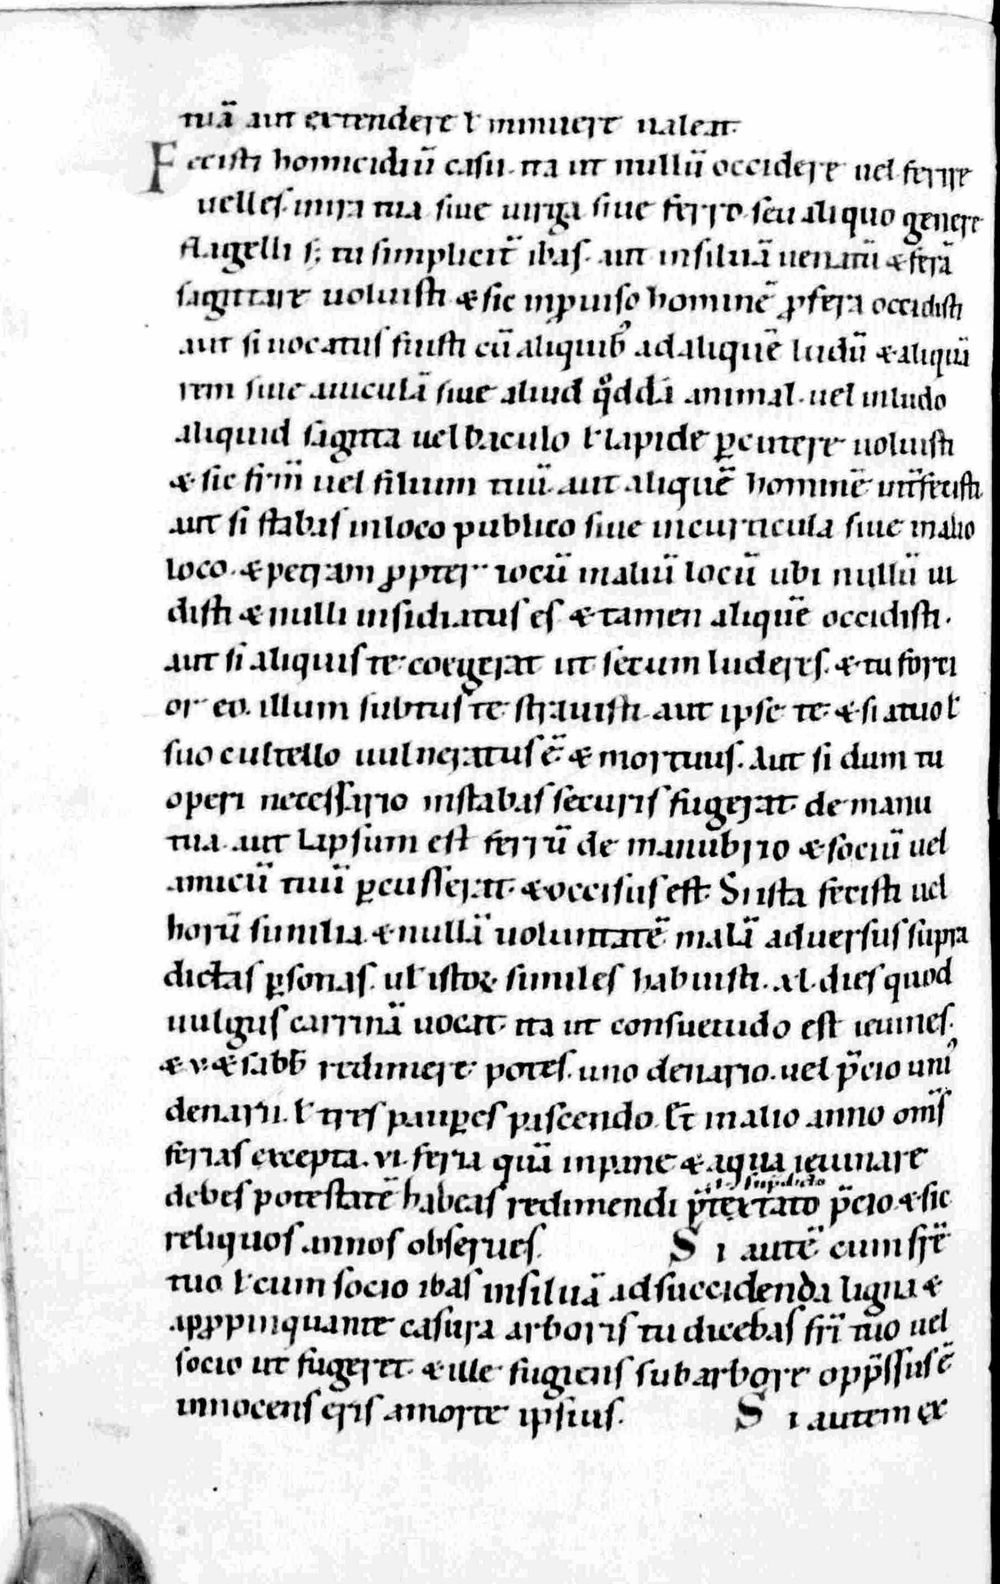 tuā aut extendere ł minuere ualeat.
Fecisti homicidiū casu. ita ut nullū occidere uel ferire
uelles. in ira tua siue uirga siue ferro. seu aliquo genere
flagelli s; tu simplicit̄ ibas. aut insiluā uenatū & ferā
sagittare uoluisti & sic inꝓuiso hominē ꝓ fera occidisti
aut si uocatus fuisti cū aliquib; adaliquē ludū & aliquā
rem siue auiculā siue aliud qͦddā animal. uel inludo
aliquid sagitta uel baculo ł lapide ꝑcutere uoluisti
& sic fr̄m uel filium tuū. aut aliquē hominē int̄fecisti
aut si stabas inloco publico siue incurticula siue inalio
loco. & petram ꝓpter iocū inaliū locū ubi nullū ui
disti & nulli insidiatus es & tamen aliquē occidisti.
aut si aliquis te coegerat ut secum luderes. & tu forti
or eo. illum subtus te strauisti. aut ipse te & si a tuo ł
suo cultello uulneratus ē & mortuus. Aut si dum tu
operi necessario instabas securis fugerat de manu
tua. aut lapsum est ferrū de manubrio & sociū uel
amicū tuū ꝑcusserat. & occisus est. Si ista fecisti uel
horū similia. & nullā uoluntatē malā aduersus supra
dictas ꝑsonas. ul istoꝝ similes habuisti. xl. dies quod
uulgus carrinā uocat. ita ut consuetudo est ieiunes.
& v. & sabb̄ redimere potes. uno denario. uel p̄cio uni᾿
denarii. ł tres pauꝑes pascendo. Et̄ inalio anno om̄s
ferias excepta. vi. feria quā inpane & aqua ieiunare
debes potestatē habeas redimendi p̄textato p̄cio. & sic
reliquos annos obserues. Si autē cum fr̄e
tuo ł cum socio ibas insiluā adsuccidenda ligna &
apꝓpinquante casura arboris tu dicebas fr̄i tuo uel
socio ut fugeret. & ille fugiens subarbore opp̄ssus ē
innocens eris amorte ipsius. Si autem ex